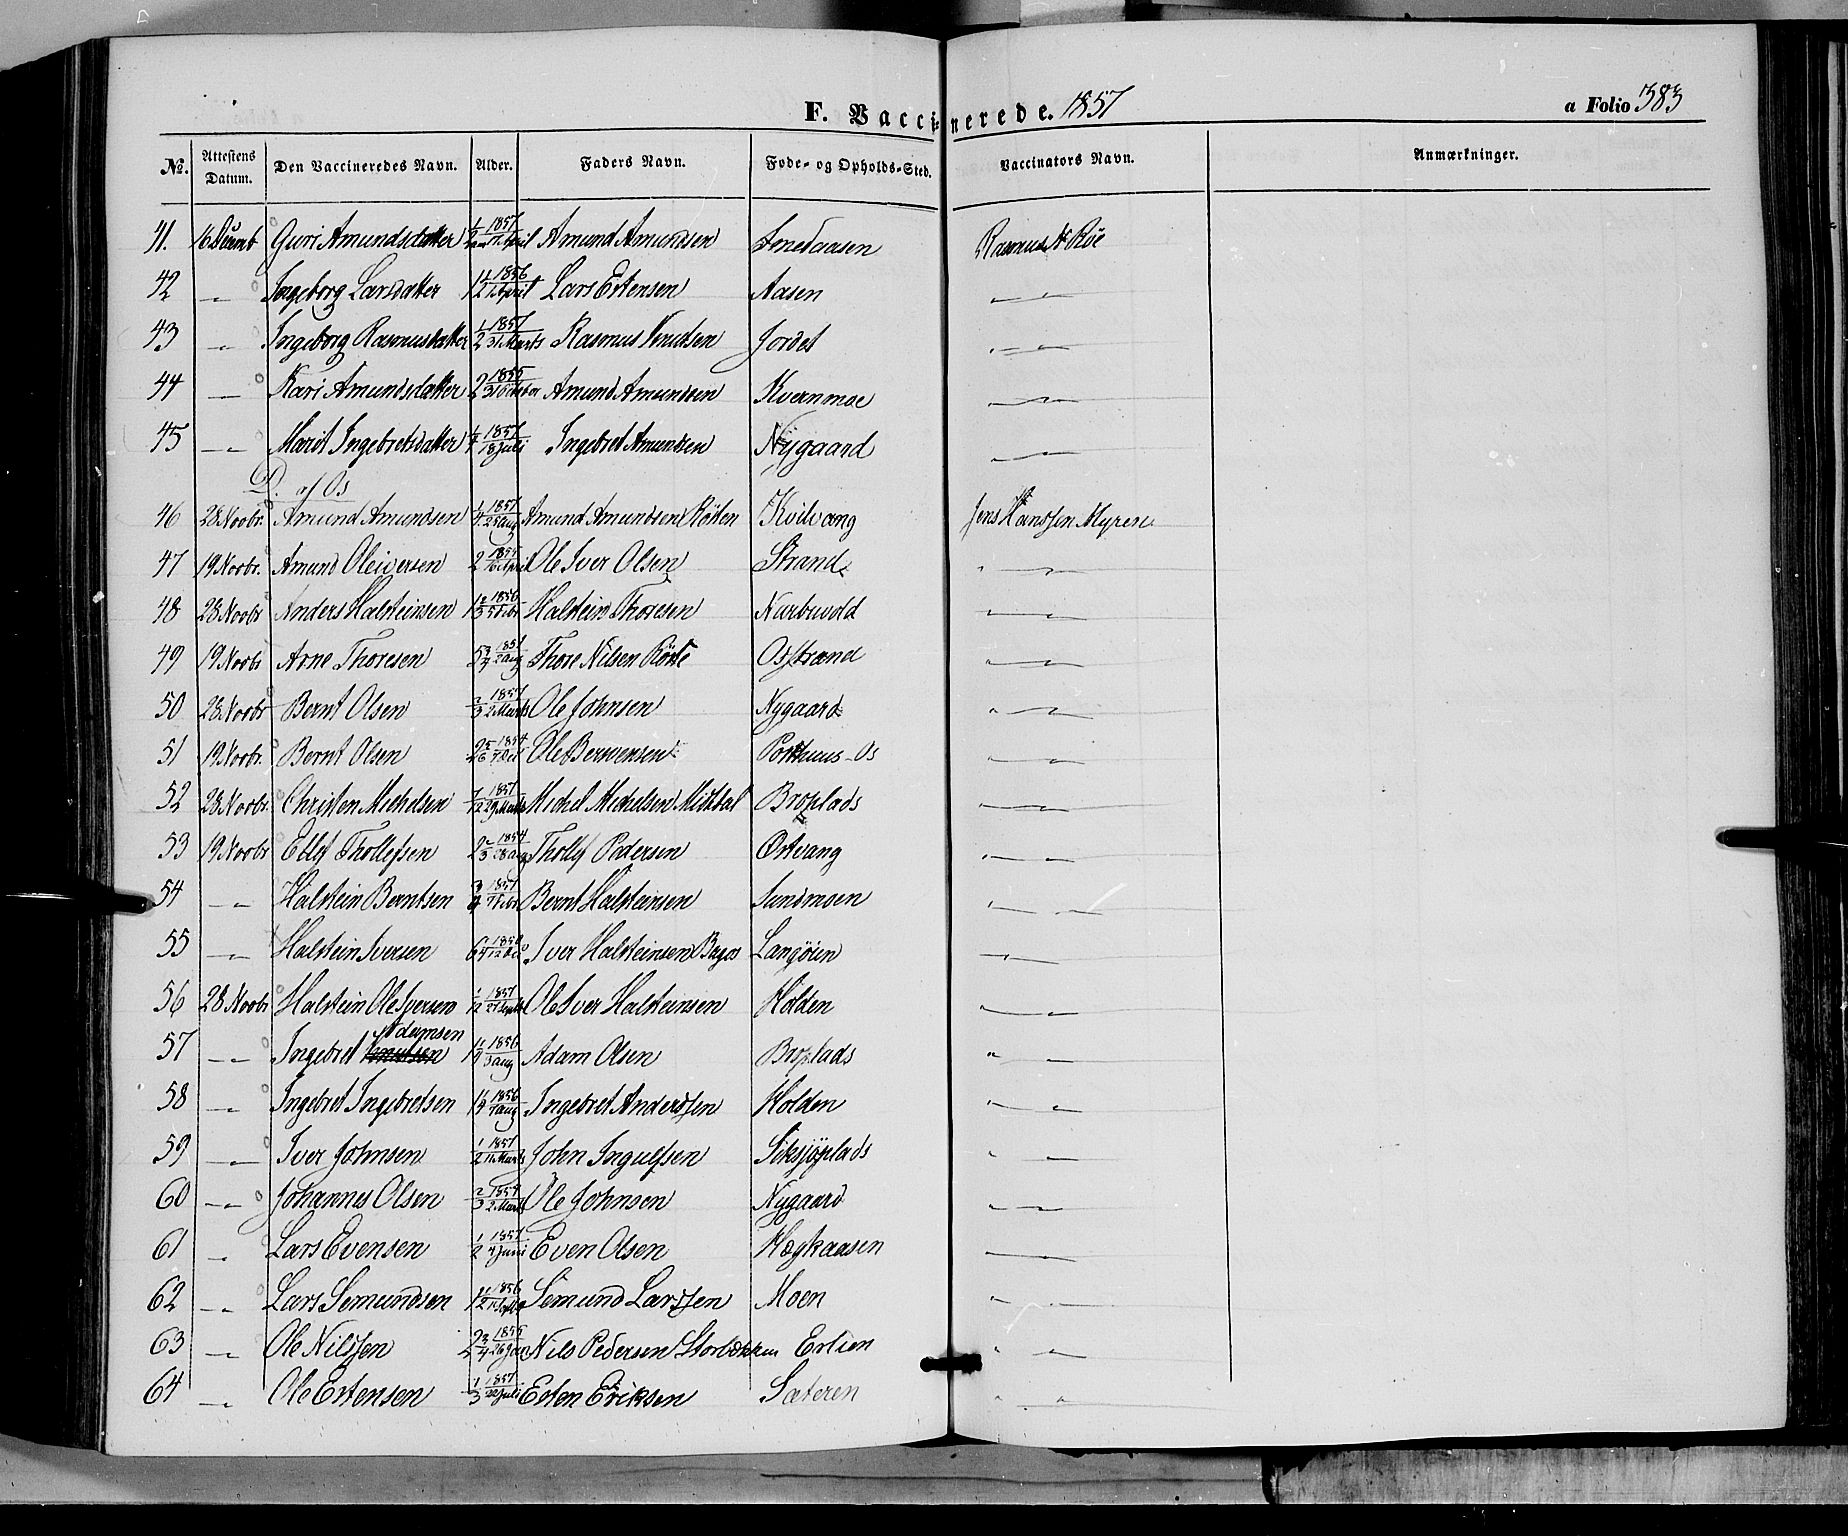 F. Vaccinerede. 1857
a Folio 383
No. Attestens Datum. Den Vaccineredes Navn. Alder. Faders Navn. Føde- og Opholds-Sted. Vaccinators Navn. Anmærkninger.
41. Guri Amundsdatter 1/2 1857 April Amund Amundsen Rasmus N Röe
42 " Ingeborg Larsdatter 1 1/2 1856 April Lars Estensen Aasen " "
43 " Ingeborg Rasmusdatter 1/2 1857 31 Marts Rasmus Knudsen Jordet " "
44 " Kari Amundsdatter 2 1855 31 October Amund Amundsen Kvernmoe " "
45 " Marit Ingebretsdatter 1/4 1857 18 Juli Ingebret Amundsen Nygaard " "
D. af Os
46 28 Novbr. Amund Amundsen 1/4 1857 25 Aug Amund Amundsen Røsten Kvilvang Jens Hanssen Myren
47 19 Novbr. Amund Oleiversen 2 1855 16 April Ole Iver Olsen Strand " "
48 28 Novbr Anders Halsteinsen 1 2/3 1856 5 Febr Halstein Thoresen Narbuvold " "
49 19 Novbr Arne Thoresen 5 3/4 185 2 Aug Thore Nilsen Röste Osstrand " "
50 28 Novbr Bernt Olsen 2/3 1857 2 Marts Ole Johnsen Nygaard " "
51 19 Novbr. Bernt Olsen 2 5/6 1854 Ole Berntsen Porthuus-Os " "
52 28 Novbr. Christen Michelsen 7/12 1857 29 Marts Michel Michelsen Midtdal Broplads " "
53 19 Novbr Ellef Thollefsen 2 2/3 1854 28 Aug Thollef Pedersen Østvang " "
54 " Halstein Berntsen 3/4 1857 Febr Bernt Halsteinsen Sundmoen " "
55 " Halstein Iversen 6 3/4 1850 12 Iver Halsteinsen Langøien " "
56 28 Novbr Halstein Ole Iversen 1/12 1857 27 Septbr Ole Iver Halsteinsen Holden " "
Adamsen
57 " Ingebret Knutsen 1 1/4 1856 3 Aug Adam Olsen Broplads " "
58 " Ingebret Ingebretsen 1 1/4 1856 Aug Ingebret Anderssen Holden " "
59 " Iver Johnsen 1/2 1857 11 Marts John Ingulfsen Siksjöplads " "
60 " Johannes Olsen 2/3 1857 2 Marts Ole Johnsen Nygaard " "
61 " Lars Evensen 1/2 1857 4 Juni Even Olsen Hægkaasen " "
62 " Lars Semundsen 1 1/2 1856 Septbr Semund Larssen Moen " "
63 " Ole Nilssen 2 3/4 1855 26 Jan Nils Pedersen Storbækken Erlien " "
64 " Ole Estensen 1/3 1857 22 Juli Esten Eriksen Sæteren " "